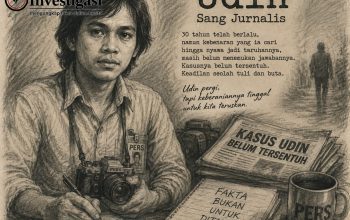 investigasi
Udin
Sang Jurnalis
30 tahun telah berlalu,
namun kebenaran yang ia cari
hingga nyawa jadi taruhannya,
masih belum menemukan jawabannya,
Kasusnya belum tersentuh.
Keadilan seolah tuli dan buta.
Udin pergi,
tapi keberaniannya tinggal
untuk kita teruskan.
PERS
KASUS UDIN
BELUM TERSENTUH
FAKTA
BUKAN UNTUK
PERS